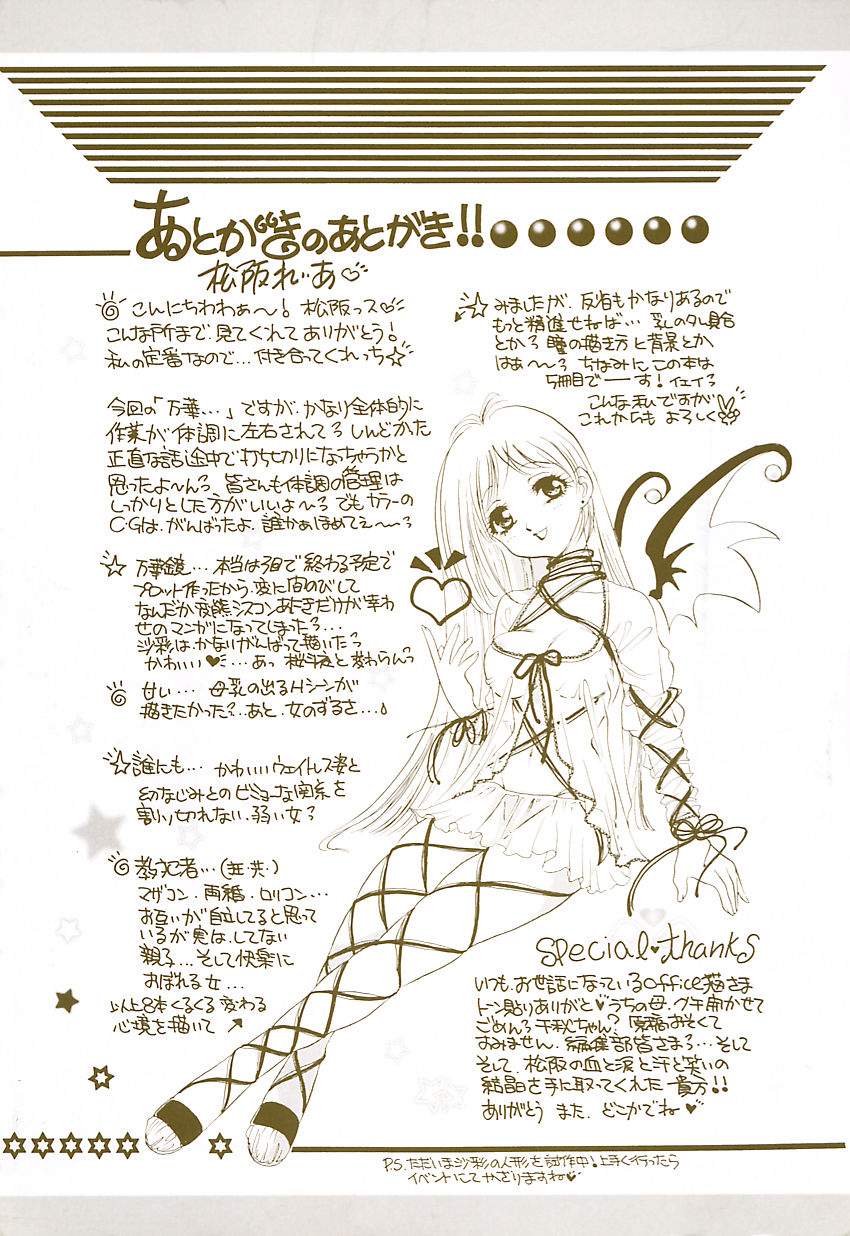 あとがきのあとがき!!
松阪れいあ♡
こんにちわわぁ〜! 松阪っス♡
こんな所まで見てくれてありがとう!
私の定番なので…付き合ってくれっち☆
今回の「万華…」ですが、かなり全体的に
作業が体調に左右されてるしんどかた
正直な話途中で打ち切りになっちゃうかと
思ったよ〜ん? 皆さんも体調の管理は
しっかりとした方がいいよ〜? でもカラーの
C・Gは、がんばったよ、誰かぁほめてぇ〜〜?
☆万華鏡…本当は3回で終わる予定で
プロット作ったから、変に間のびして
なんだか変態シスコンあにきだけが幸わ
せのマンガになってしまった?…
沙彩はかなりがんばって描いた?
かわいい♥…あっ桜斗夜と変わらんっ
甘い… 母乳の出るHシーンが
描きたかった?あと、女のずるさ…♪
☆誰にも… かわいいウェイトレス姿と
幼なじみとのビミョーな関系を
割り切れない、弱い女?
教犯者…(共)
マザコン、再婚、ロリコン…
お互いが自立してると思って
いるが実は、してない
親子…そして快楽に
おぼれる女…
以上8本くるくる変わる
心境を描いて↗
☆みましたが、反省もかなりあるので
もっと精進せねば… 乳のタレ具合
とか? 瞳の描き方と背景とか
はぁ〜〜? ちなみにこの本は
5冊目でーーす! イェイ?
こんな私ですが
これからも よろしく
special♥thanks
いつも、お世話になっているoffice猫さま
トーン貼りありがと♥うちの母、グチ聞かせて
ごめん?千秋ちゃん? 原稿おそくて
すみません、編集部皆さま?…そして
そして、松阪の血と涙と汗と笑いの
結晶を手に取ってくれた 貴方!!
ありがとう また、どこかでね♥
P.S.ただいま沙彩の人形を試作中!上手く行ったら
イベントにてかざりますね♥